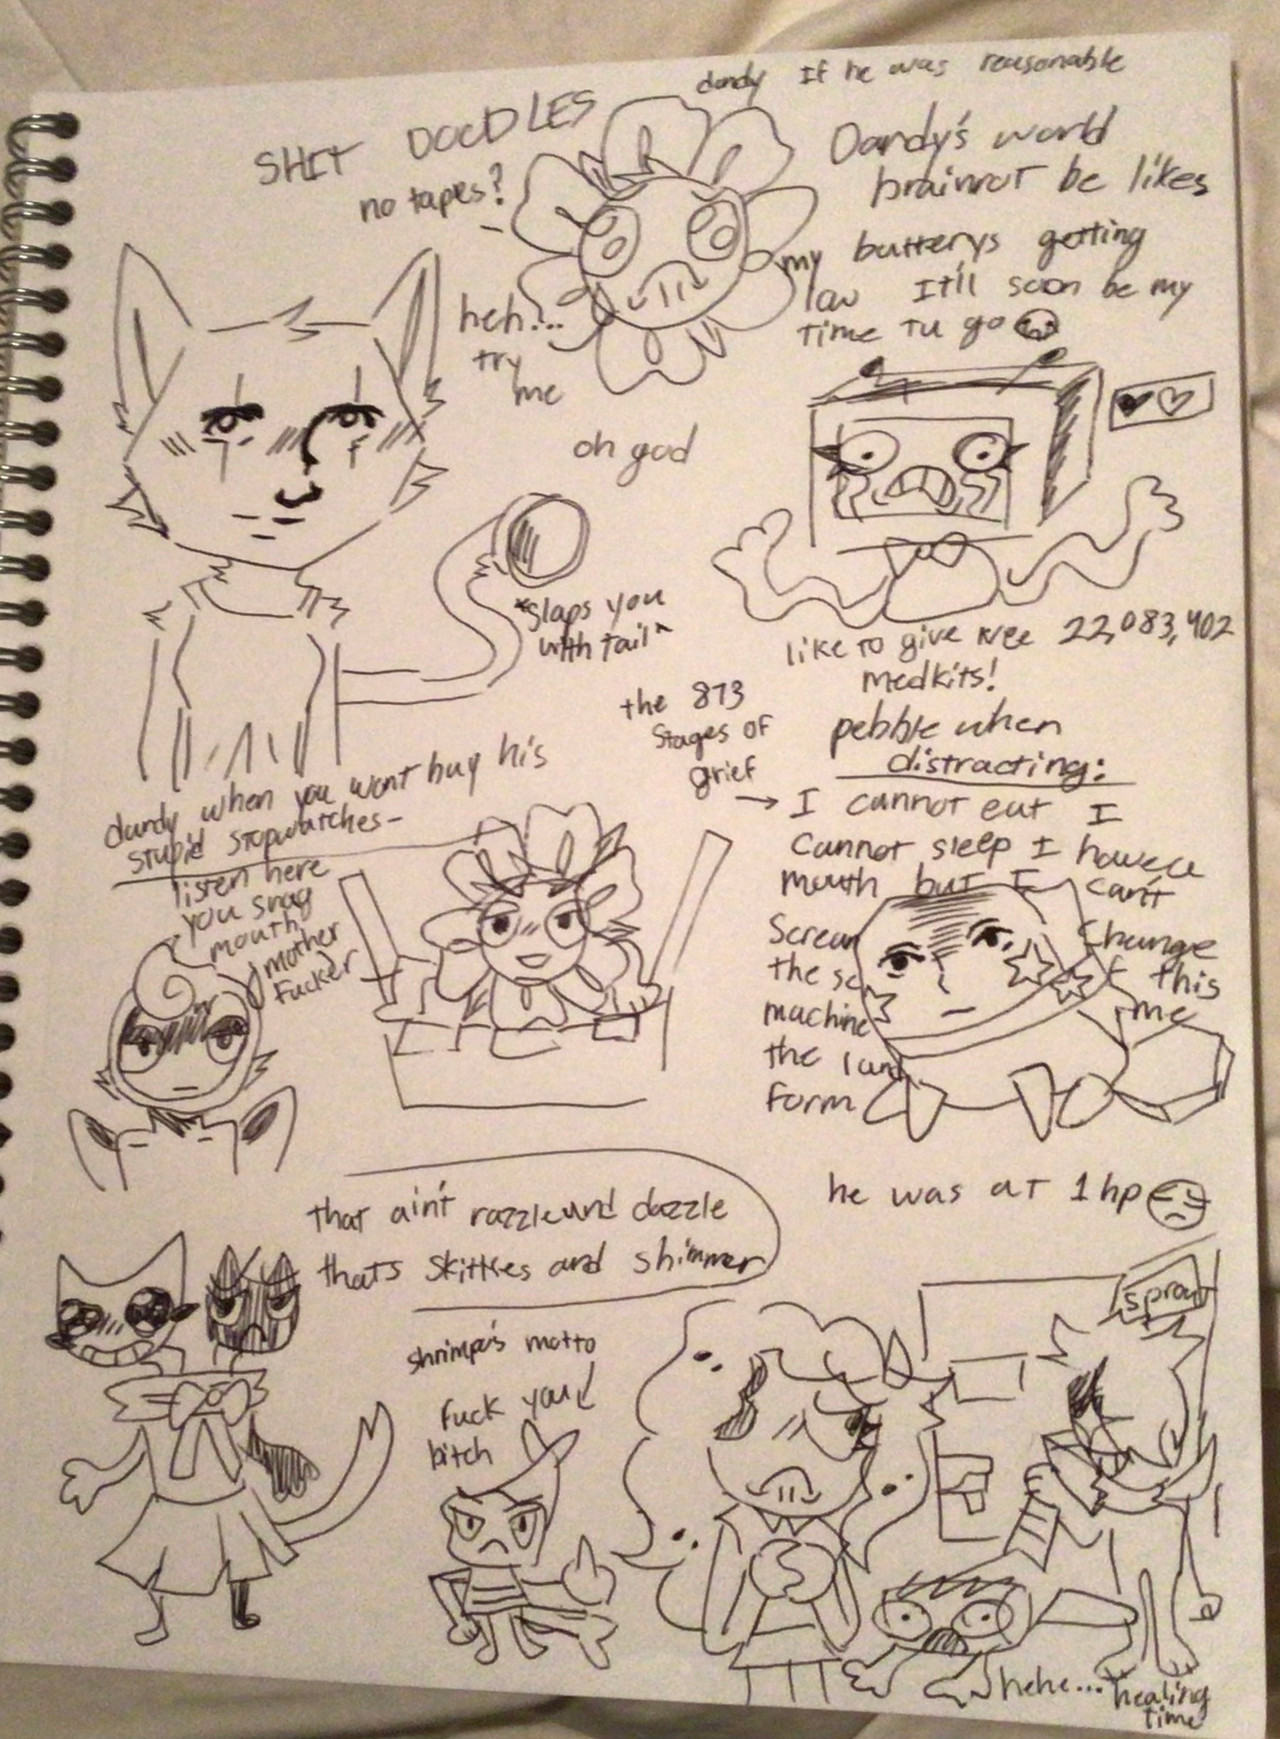 SHIT DOODLES
dandy If he was reasonable
no tapes?
heh...
try
me
Dandy's world
brainrot be likes
my batterys getting
low It'll soon be my
time tu go
oh god
*slaps you
with tail*
like to give mee 22,083,402
medkits!
the 873
stages of
grief
pebble when
distracting:
I cannot eat I
cannot sleep I
mouth but I can't
Scream
change
the
this
machine
me
the land
form
dandy when you wont buy his
stupid stopwatches-
listen here
you snag
mouth
mother
fucker
he was at 1hp
that ain't razzle and dazzle
thats skittles and shimmer
shrimpo's motto
fuck you
bitch
sprout
hehe...
healing
time